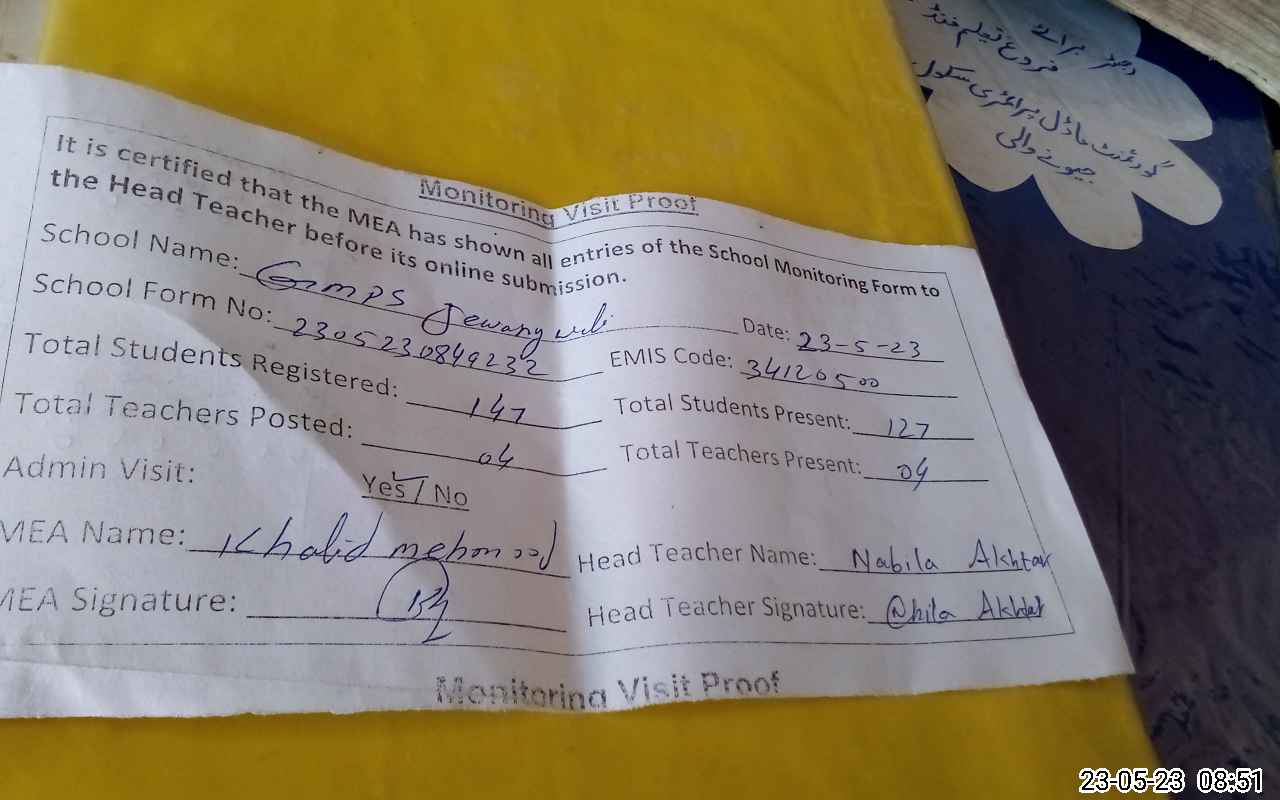 دجٹر براۓ
فروغ تعلیم فنڈ
گورنمنٹ ماڈل پرائمری سکول
جیونے والی
Monitoring Visit Proof
It is certified that the MEA has shown all entries of the School Monitoring Form to
the Head Teacher before its online submission.
School Name: GMPS Jewany wali Date: 23-5-23
School Form No: 2305230849232 EMIS Code: 34120500
Total Students Registered: 147 Total Students Present: 127
Total Teachers Posted: 04 Total Teachers Present: 04
Admin Visit: Yes / No
MEA Name: Khalid mehmood Head Teacher Name: Nabila Akhtar
MEA Signature: Head Teacher Signature: Akhtar
Monitoring Visit Proof
23-05-23 08:51